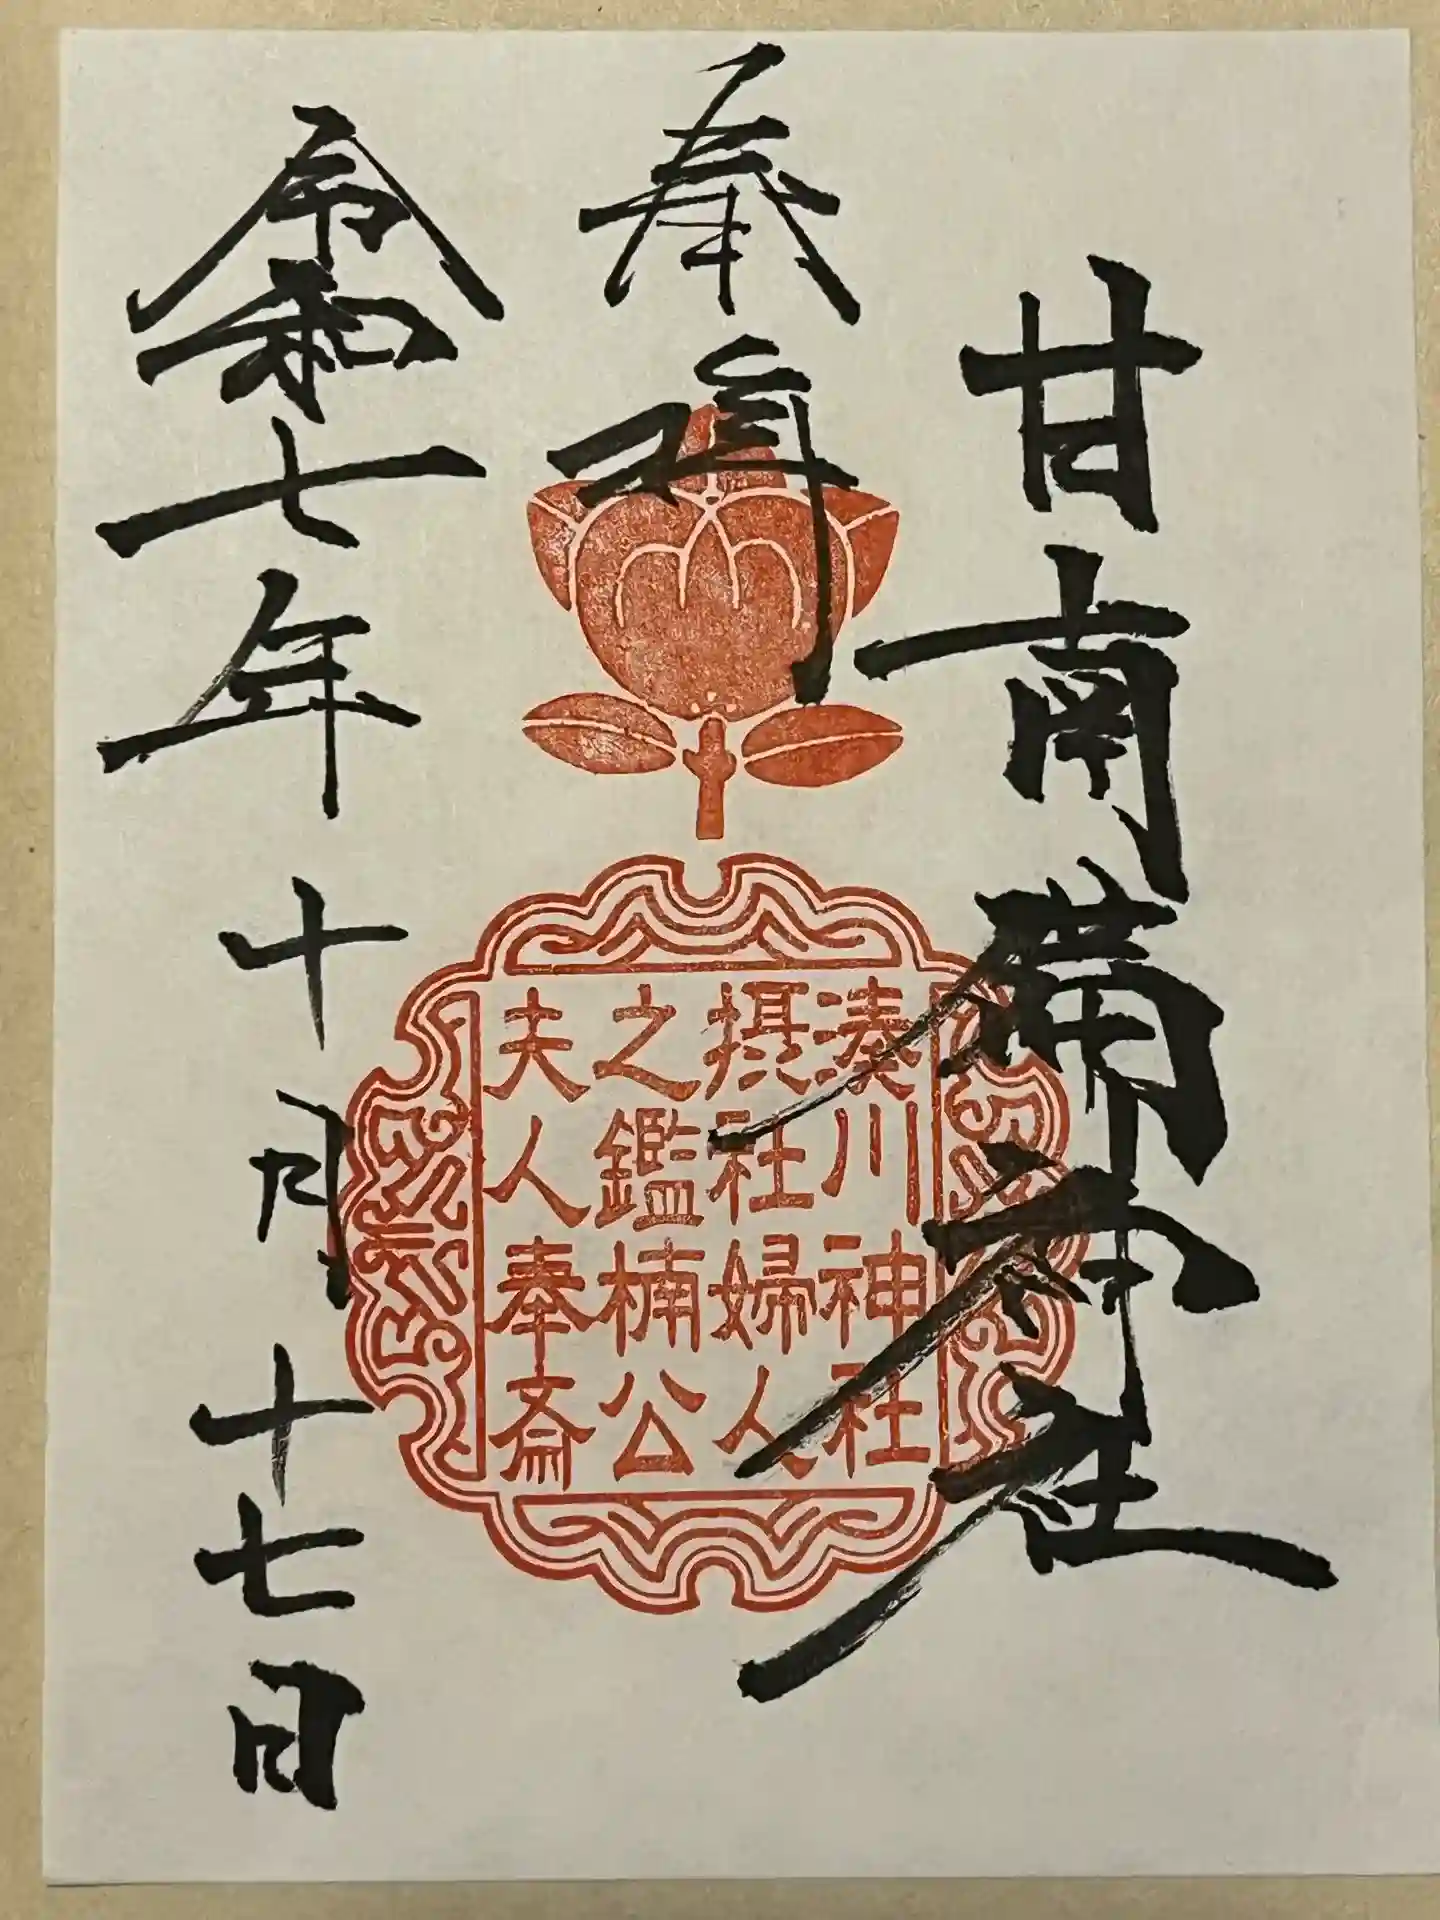 甘南備神社
奉拝
令和七年十月十七日
湊川神社
摂社婦人
之鑑楠公
夫人奉斎